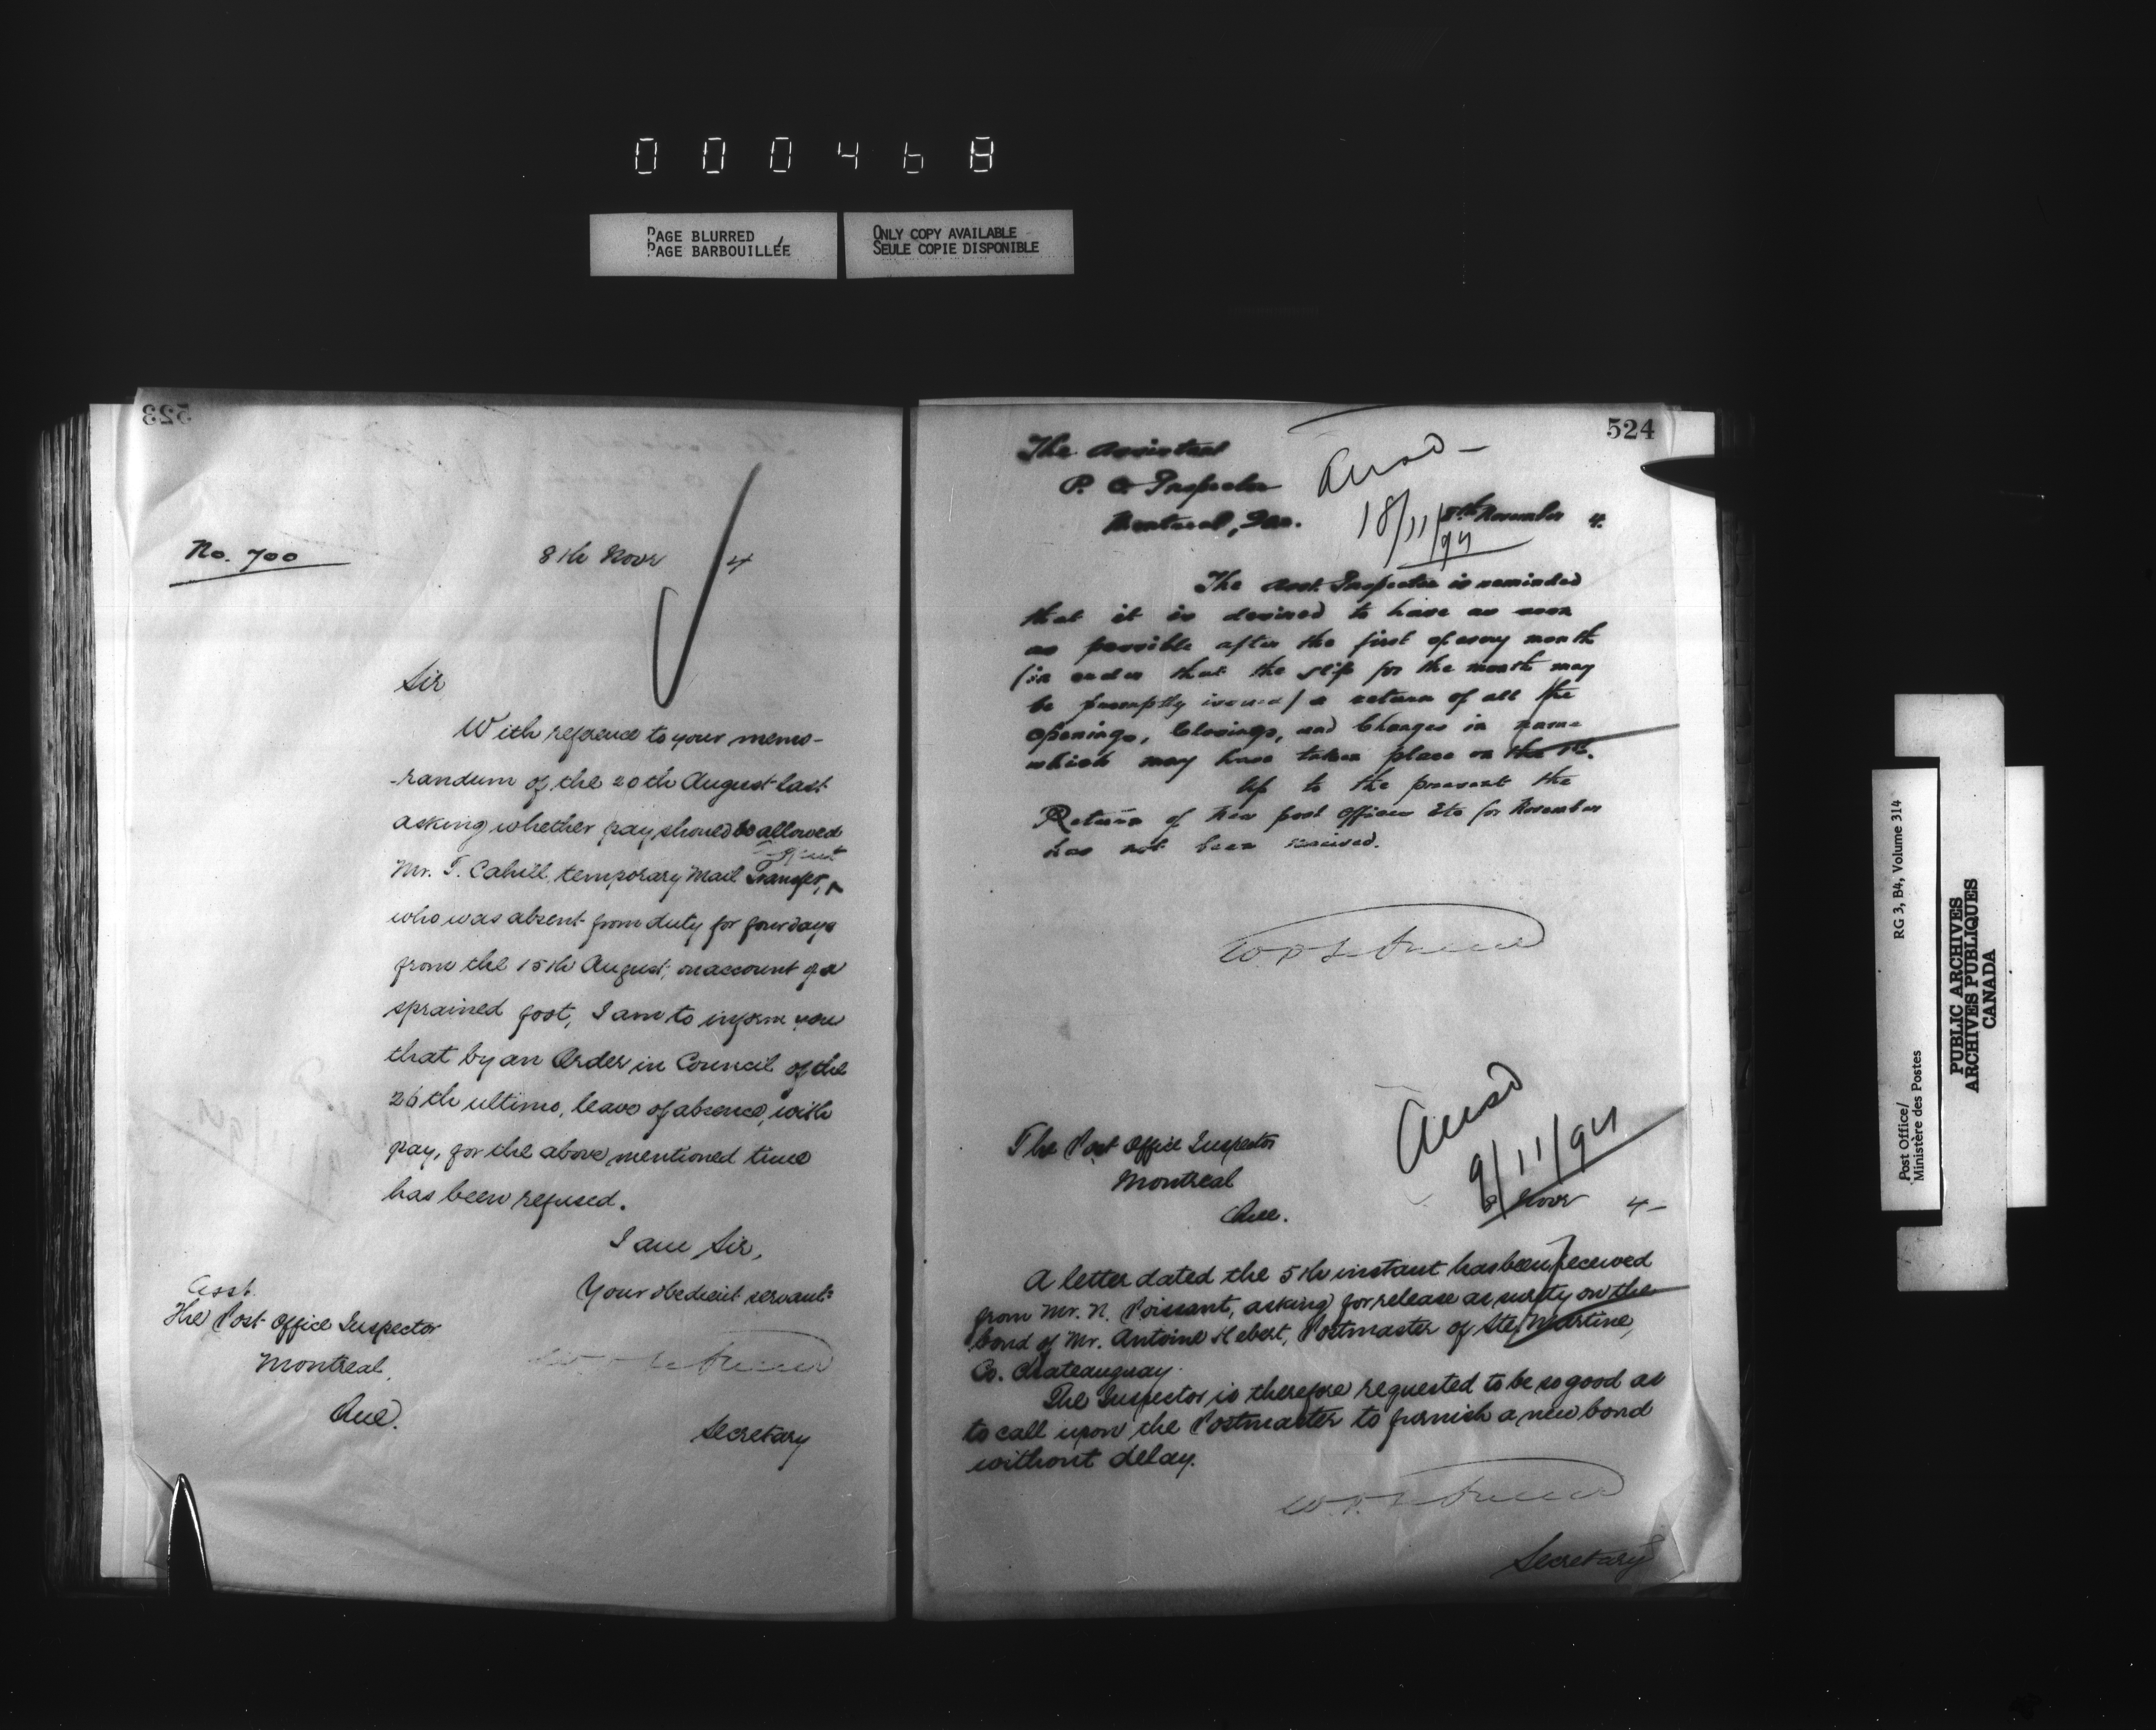 000468
PAGE BLURRED
PAGE BARBOUILLÉE
ONLY COPY AVAILABLE
SEULE COPIE DISPONIBLE
523
No. 700
8th Novr 4
Sir,
With reference to your memo-
-randum of the 20th August last
asking whether pay should be allowed
Mr. T. Cahill, temporary Mail Transfer,
Agent
who was absent from duty for four days
from the 15th August, on account of a
sprained foot, I am to inform you
that by an Order in Council of the
26th ultimo, leave of absence, with
pay, for the above mentioned time
has been refused.
I am Sir,
Your obedient servant
Asst.
The Post Office Inspector
Montreal,
Que.
Secretary
524
The Assistant
P. O. Inspector
Montreal, Que.
Ansd -
18/11/94
8th November 4.
The Asst. Inspector is reminded
that it is desired to have as soon
as possible after the first of every month
(in order that the slip for the month may
be promptly issued) a return of all the
openings, Closings, and Changes in name
which may have taken place on the 1st.
Up to the present the
Return of New post Offices Etc for November
has not been received.
Ansd
9/11/94
The Post Office Inspector
Montreal
Que.
8 Novr 4-
A letter dated the 5th instant has been received
from Mr. N. Poissant, asking for release as surety on the
bond of Mr. Antoine Hebert, Postmaster of Ste. Martine,
Co. Chateauguay.
The Inspector is therefore requested to be so good as
to call upon the Postmaster to furnish a new bond
without delay.
Secretary
Post Office/
Ministère des Postes
RG 3, B4, Volume 314
PUBLIC ARCHIVES
ARCHIVES PUBLIQUES
CANADA